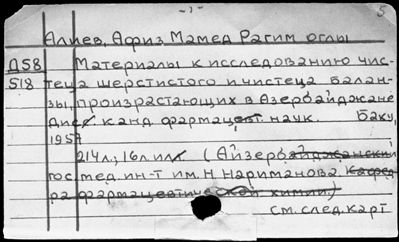 -2- 5
Алиев, Афиз Мамед Рагим оглы
Д58 Материалы к исследованию чис-
518 теца шерстистого и чистеца балан-
зы, произрастающих в Азербайджане
Дис. канд фармацевт наук. Баку,
1957
214л.; 16л. илл. (Айзербайджанский
гос мед. ин-т им. Н Нариманова. Кафед
ра фармацевтической химии.)
См. след. карт